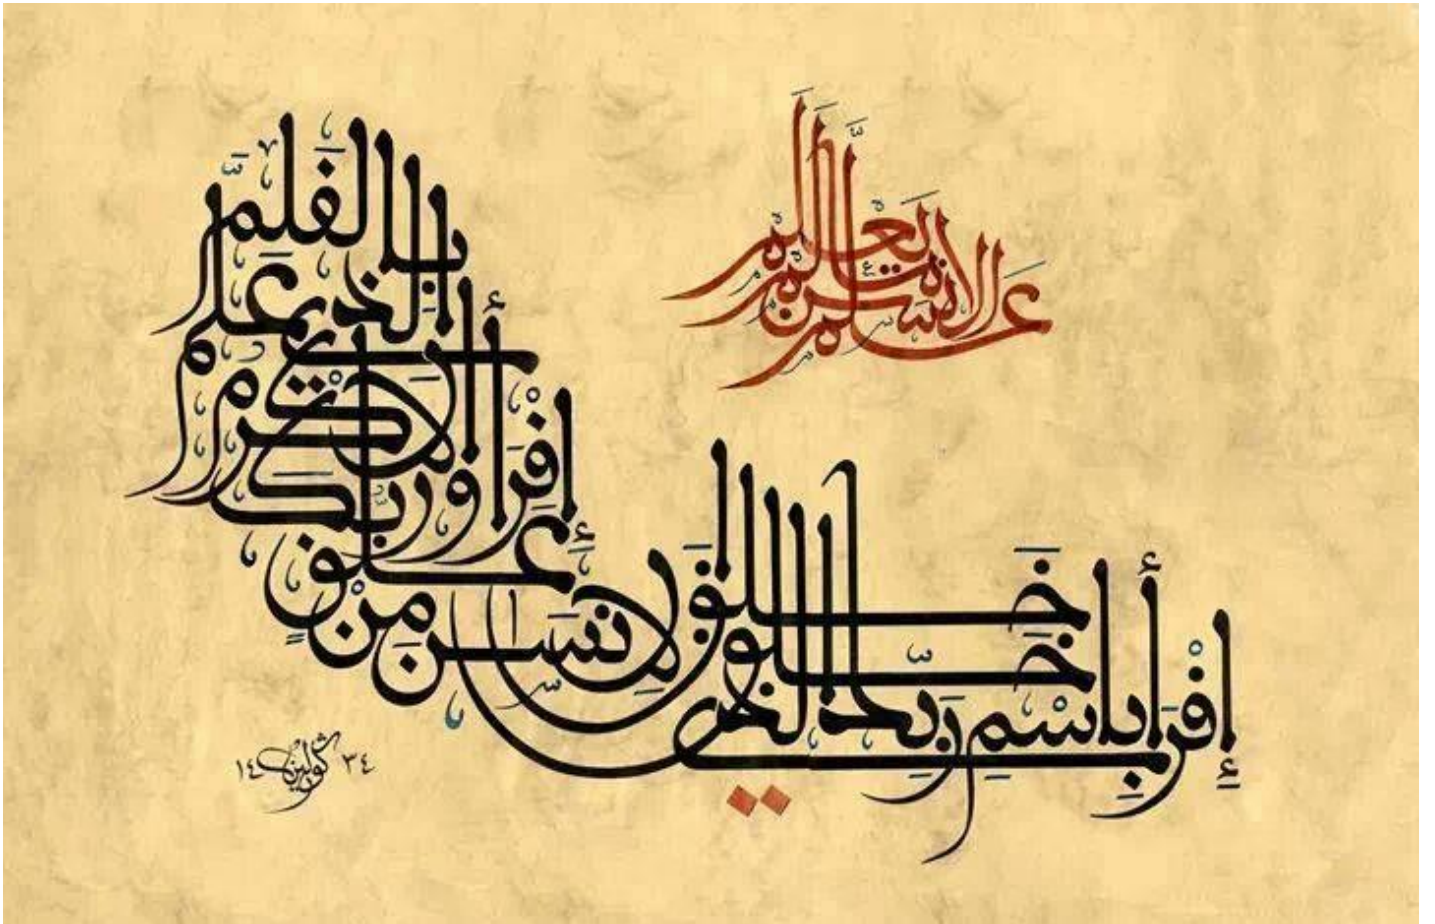 إِقْرَأْ بِاسْمِ رَبِّكَ الَّذِي خَلَقَ
خَلَقَ الْإِنْسَٰنَ مِنْ عَلَقٍ
إِقْرَأْ وَرَبُّكَ الْأَكْرَمُ
الَّذِي عَلَّمَ بِالْقَلَمِ
عَلَّمَ الْإِنْسَٰنَ مَا لَمْ يَعْلَمْ
١٤٣٤